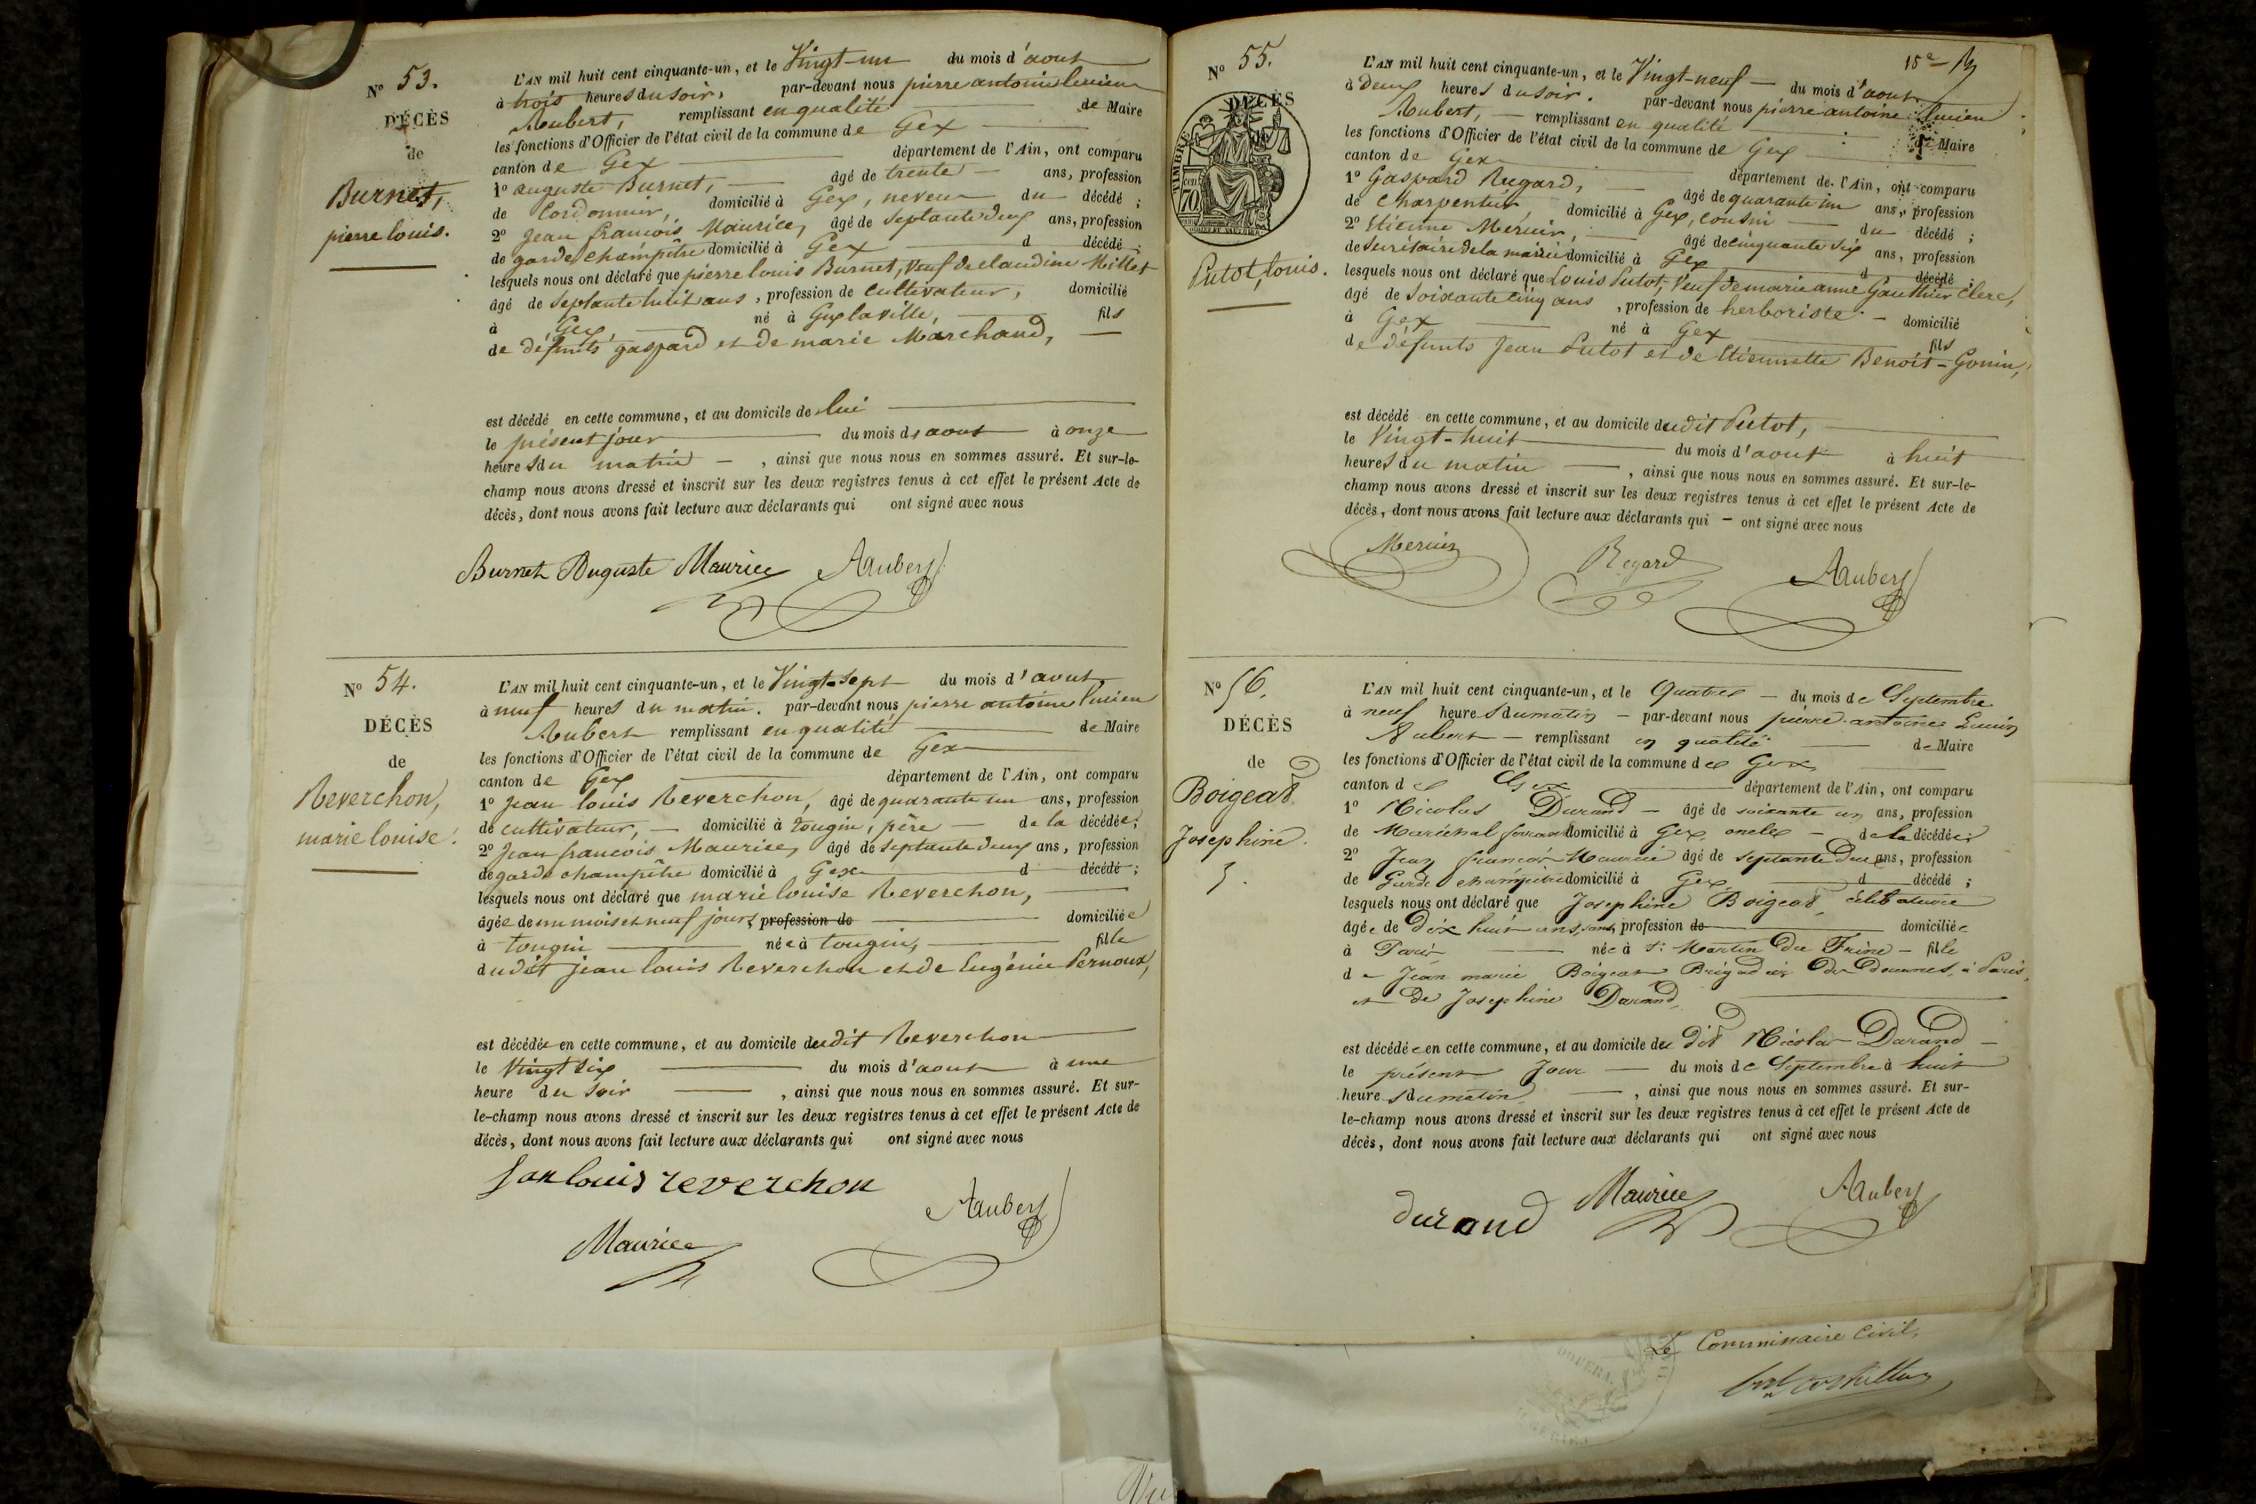 N° 53.
DÉCÈS
de
Burnet,
pierre louis.
L'AN mil huit cent cinquante-un, et le Vingt-un du mois d'aout
à trois heures du soir, par-devant nous pierre antoine lucien
Aubert, remplissant en qualité de Maire
les fonctions d'Officier de l'état civil de la commune de Gex
canton de Gex département de l'Ain, ont comparu
1° auguste Burnet, âgé de trente ans, profession
de Cordonnier, domicilié à Gex, neveu du décédé ;
2° Jean françois Maurice, âgé de septante deux ans, profession
de garde champêtre domicilié à Gex d décédé ;
lesquels nous ont déclaré que pierre louis Burnet, Veuf de claudine Millet
âgé de Septante huit ans, profession de Cultivateur, domicilié
à Gex, né à Gex la ville, fils
de défunts gaspard et de marie Marchand,
est décédé en cette commune, et au domicile de lui
le présent jour du mois d'aout à onze
heures du matin, ainsi que nous nous en sommes assuré. Et sur-le-
champ nous avons dressé et inscrit sur les deux registres tenus à cet effet le présent Acte de
décès, dont nous avons fait lecture aux déclarants qui ont signé avec nous
Burnet Auguste Maurice Aubert
N° 54.
DÉCÈS
de
Reverchon,
marie louise.
L'AN mil huit cent cinquante-un, et le Vingt-sept du mois d'aout
à neuf heures du matin. par-devant nous pierre antoine lucien
Aubert remplissant en qualité de Maire
les fonctions d'Officier de l'état civil de la commune de Gex
canton de Gex département de l'Ain, ont comparu
1° Jean louis Reverchon, âgé de quarante un ans, profession
de cultivateur, domicilié à tougin, père de la décédée ;
2° Jean françois Maurice, âgé de septante deux ans, profession
de garde champêtre domicilié à Gex d décédé ;
lesquels nous ont déclaré que marie louise Reverchon,
âgée de un mois et neuf jours, profession de domiciliée
à tougin née à tougin, fille
dudit jean louis Reverchon et de Eugénie Pernoux,
est décédée en cette commune, et au domicile dudit Reverchon
le Vingt six du mois d'aout à une
heure du soir, ainsi que nous nous en sommes assuré. Et sur-
le-champ nous avons dressé et inscrit sur les deux registres tenus à cet effet le présent Acte de
décès, dont nous avons fait lecture aux déclarants qui ont signé avec nous
Jan louis reverchon
Aubert
Maurice
15e
N° 55.
DÉCÈS
TIMBRE
70 cen
Putot, louis.
L'AN mil huit cent cinquante-un, et le Vingt-neuf du mois d'aout
à deux heures du soir. par-devant nous pierre antoine lucien
Aubert, remplissant en qualité de Maire
les fonctions d'Officier de l'état civil de la commune de Gex
canton de Gex département de l'Ain, ont comparu
1° Gaspard Regard, âgé de quarante un ans, profession
de Charpentier, domicilié à Gex, cousin du décédé ;
2° Etienne Mercier, âgé de cinquante six ans, profession
de Secrétaire de la mairie domicilié à Gex d décédé ;
lesquels nous ont déclaré que Louis Putot, Veuf de marie anne Gauthier Clerc,
âgé de Soixante cinq ans, profession de herboriste domicilié
à Gex né à Gex fils
de défunts Jean Putot et de Etiennette Benoît-Gonin,
est décédé en cette commune, et au domicile dudit Putot,
le Vingt-huit du mois d'aout à huit
heures du matin, ainsi que nous nous en sommes assuré. Et sur-le-
champ nous avons dressé et inscrit sur les deux registres tenus à cet effet le présent Acte de
décès, dont nous avons fait lecture aux déclarants qui ont signé avec nous
Mercier Regard Aubert
N° 56.
DÉCÈS
de
Boigeat
Josephine.
L'AN mil huit cent cinquante-un, et le Quatre du mois de Septembre
à neuf heures du matin par-devant nous pierre antoine Lucien
Aubert remplissant en qualité de Maire
les fonctions d'Officier de l'état civil de la commune de Gex
canton de Gex département de l'Ain, ont comparu
1° Nicolas Durand âgé de soixante un ans, profession
de Maréchal ferrant domicilié à Gex oncle de la décédée ;
2° Jean françois Maurice âgé de septante deux ans, profession
de Garde champêtre domicilié à Gex d décédé ;
lesquels nous ont déclaré que Josephine Boigeat, célibataire
âgée de Dix huit ans, sans profession de domiciliée
à Paris née à St Martin du Frêne fille
de Jean marie Boigeat Brigadier des douanes, à Paris,
et de Josephine Durand,
est décédée en cette commune, et au domicile du dit Nicolas Durand
le présent Jour du mois de Septembre à huit
heures du matin, ainsi que nous nous en sommes assuré. Et sur-
le-champ nous avons dressé et inscrit sur les deux registres tenus à cet effet le présent Acte de
décès, dont nous avons fait lecture aux déclarants qui ont signé avec nous
durand Maurice Aubert
Le Commissaire Civil,